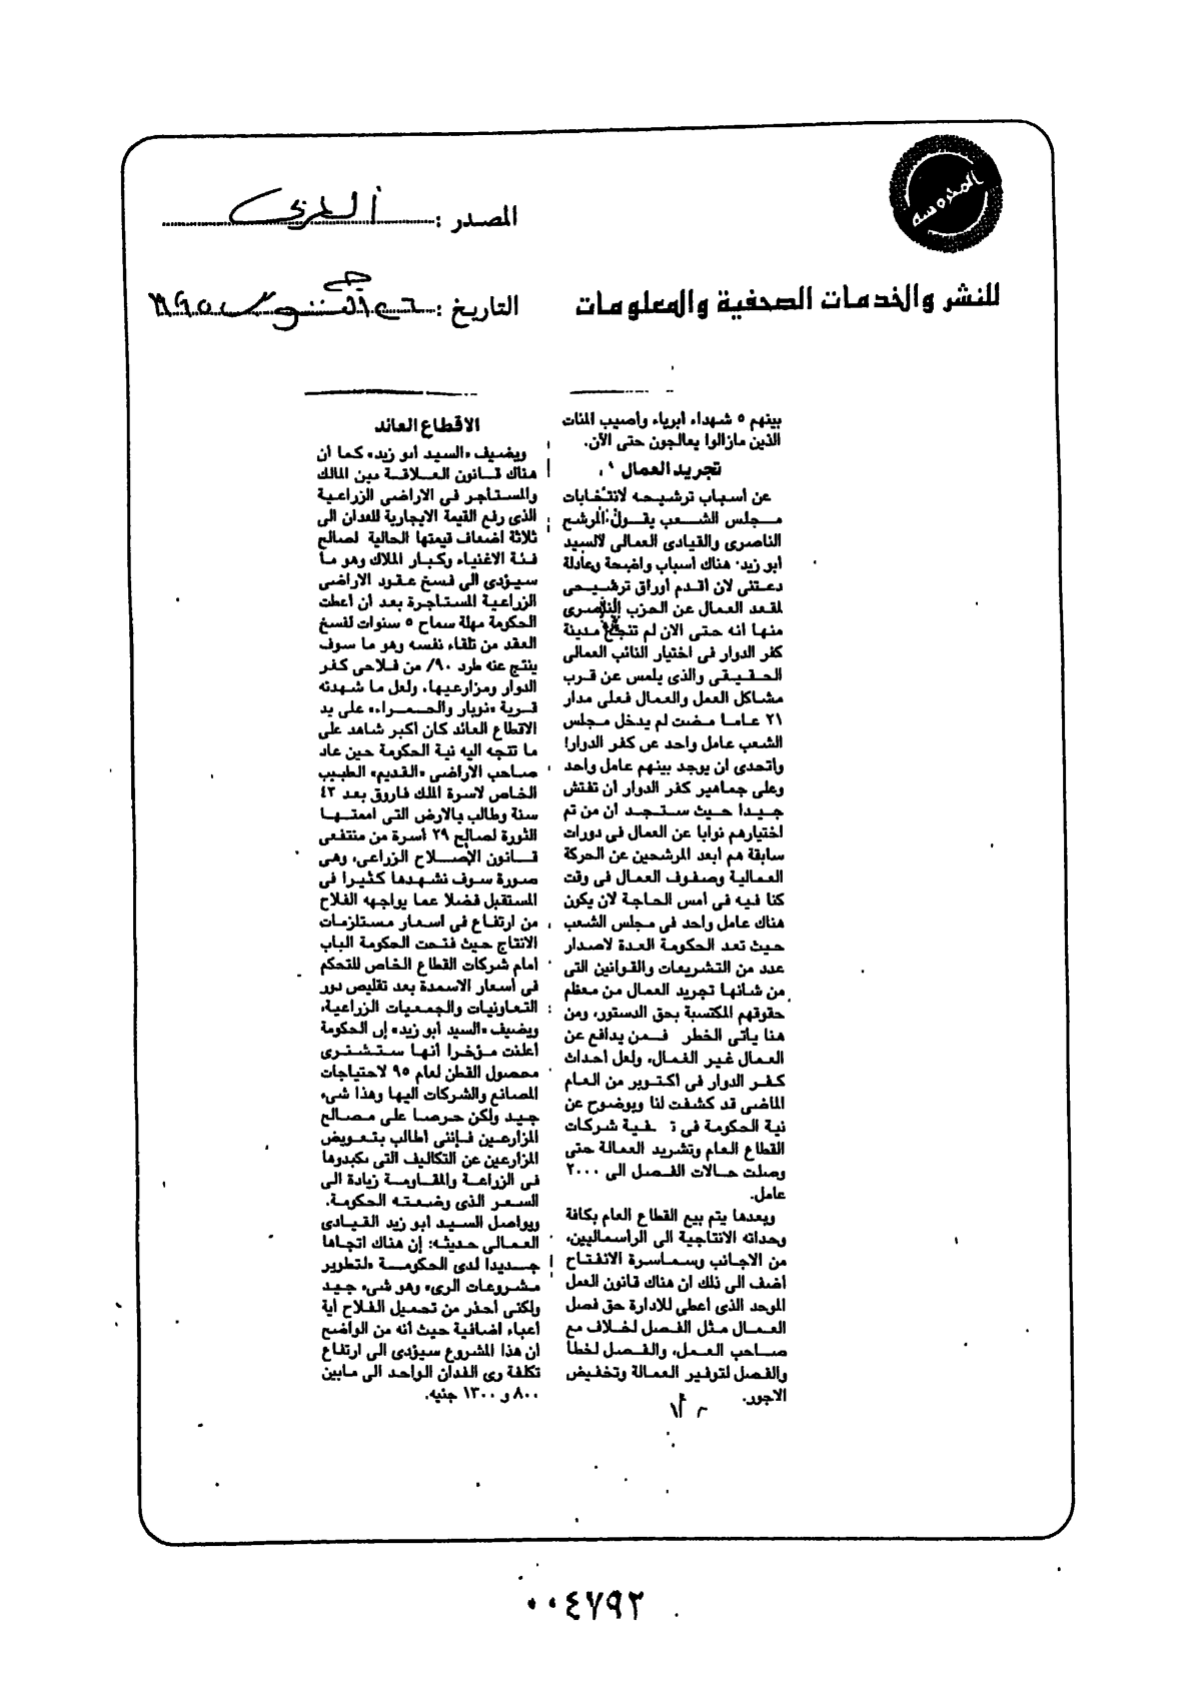 المحروسة
المصدر : العربي
للنشر والخدمات الصحفية والمعلومات
التاريخ : ١٩٩٥
بينهم ٥ شهداء أبرياء وأصيب المئات
الذين مازالوا يعالجون حتى الآن.
تجريد العمال
عن أسباب ترشيحه لانتخابات
مجلس الشعب يقول المرشح
الناصرى والقيادى العمالى السيد
أبو زيد: هناك أسباب واضحة وعادلة
دعتنى لان أقدم أوراق ترشيحى
لمقعد العمال عن الحزب الناصرى
منها أنه حتى الان لم تنجح مدينة
كفر الدوار فى اختيار النائب العمالى
الحقيقى والذى يلمس عن قرب
مشاكل العمل والعمال فعلى مدار
٢١ عاما مضت لم يدخل مجلس
الشعب عامل واحد عن كفر الدوار!
وأتحدى ان يوجد بينهم عامل واحد
وعلى جماهير كفر الدوار أن تفتش
جيدا حيث ستجد ان من تم
اختيارهم نوابا عن العمال فى دورات
سابقة هم أبعد المرشحين عن الحركة
العمالية وصفوف العمال فى وقت
كنا فيه فى أمس الحاجة لان يكون
هناك عامل واحد فى مجلس الشعب
حيث تعد الحكومة العدة لاصدار
عدد من التشريعات والقوانين التى
من شانها تجريد العمال من معظم
حقوقهم المكتسبة بحق الدستور، ومن
هنا يأتى الخطر فمن يدافع عن
العمال غير العمال، ولعل أحداث
كفر الدوار فى اكتوبر من العام
الماضى قد كشفت لنا وبوضوح عن
نية الحكومة فى تصفية شركات
القطاع العام وتشريد العمالة حتى
وصلت حالات الفصل الى ٢٠٠٠
عامل.
وبعدها يتم بيع القطاع العام بكافة
وحداته الانتاجية الى الرأسماليين،
من الاجانب وسماسرة الانفتاح
أضف الى ذلك ان هناك قانون العمل
الموحد الذى أعطى للادارة حق فصل
العمال مثل الفصل لخلاف مع
صاحب العمل، والفصل لخطأ
والفصل لتوفير العمالة وتخفيض
الاجور.
الاقطاع العائد
ويضيف «السيد أبو زيد» كما أن
هناك قانون العلاقة بين المالك
والمستأجر فى الاراضى الزراعية
الذى رفع القيمة الايجارية للفدان الى
ثلاثة أضعاف قيمتها الحالية لصالح
فئة الاغنياء وكبار الملاك وهو ما
سيؤدى الى فسخ عقود الاراضى
الزراعية المستأجرة بعد أن أعطت
الحكومة مهلة سماح ٥ سنوات لفسخ
العقد من تلقاء نفسه وهو ما سوف
ينتج عنه طرد ٩٠٪ من فلاحى كفر
الدوار ومزارعيها، ولعل ما شهدته
قرية «نوبار والحمراء» على يد
الاقطاع العائد كان أكبر شاهد على
ما تتجه اليه نية الحكومة حين عاد
صاحب الاراضى «القديم» الطبيب
الخاص لاسرة الملك فاروق بعد ٤٣
سنة وطالب بالارض التى اممتها
الثورة لصالح ٢٩ أسرة من منتفعى
قانون الإصلاح الزراعى، وهى
صورة سوف نشهدها كثيرا فى
المستقبل فضلا عما يواجهه الفلاح
من ارتفاع فى اسعار مستلزمات
الانتاج حيث فتحت الحكومة الباب
أمام شركات القطاع الخاص للتحكم
فى أسعار الاسمدة بعد تقليص دور
التعاونيات والجمعيات الزراعية،
ويضيف «السيد أبو زيد» إن الحكومة
أعلنت مؤخرا أنها ستشترى
محصول القطن لعام ٩٥ لاحتياجات
المصانع والشركات اليها وهذا شىء
جيد ولكن حرصا على مصالح
المزارعين فإننى أطالب بتعويض
المزارعين عن التكاليف التى تكبدوها
فى الزراعة والمقاومة زيادة الى
السعر الذى وضعته الحكومة.
ويواصل السيد أبو زيد القيادى
العمالى حديثه: إن هناك اتجاها
جديدا لدى الحكومة «لتطوير
مشروعات الرى» وهو شىء جيد
ولكنى أحذر من تحميل الفلاح أية
أعباء اضافية حيث أنه من الواضح
ان هذا المشروع سيؤدى الى ارتفاع
تكلفة رى الفدان الواحد الى مابين
٨٠٠ و ١٣٠٠ جنيه.
٠٠٤٧٩٢